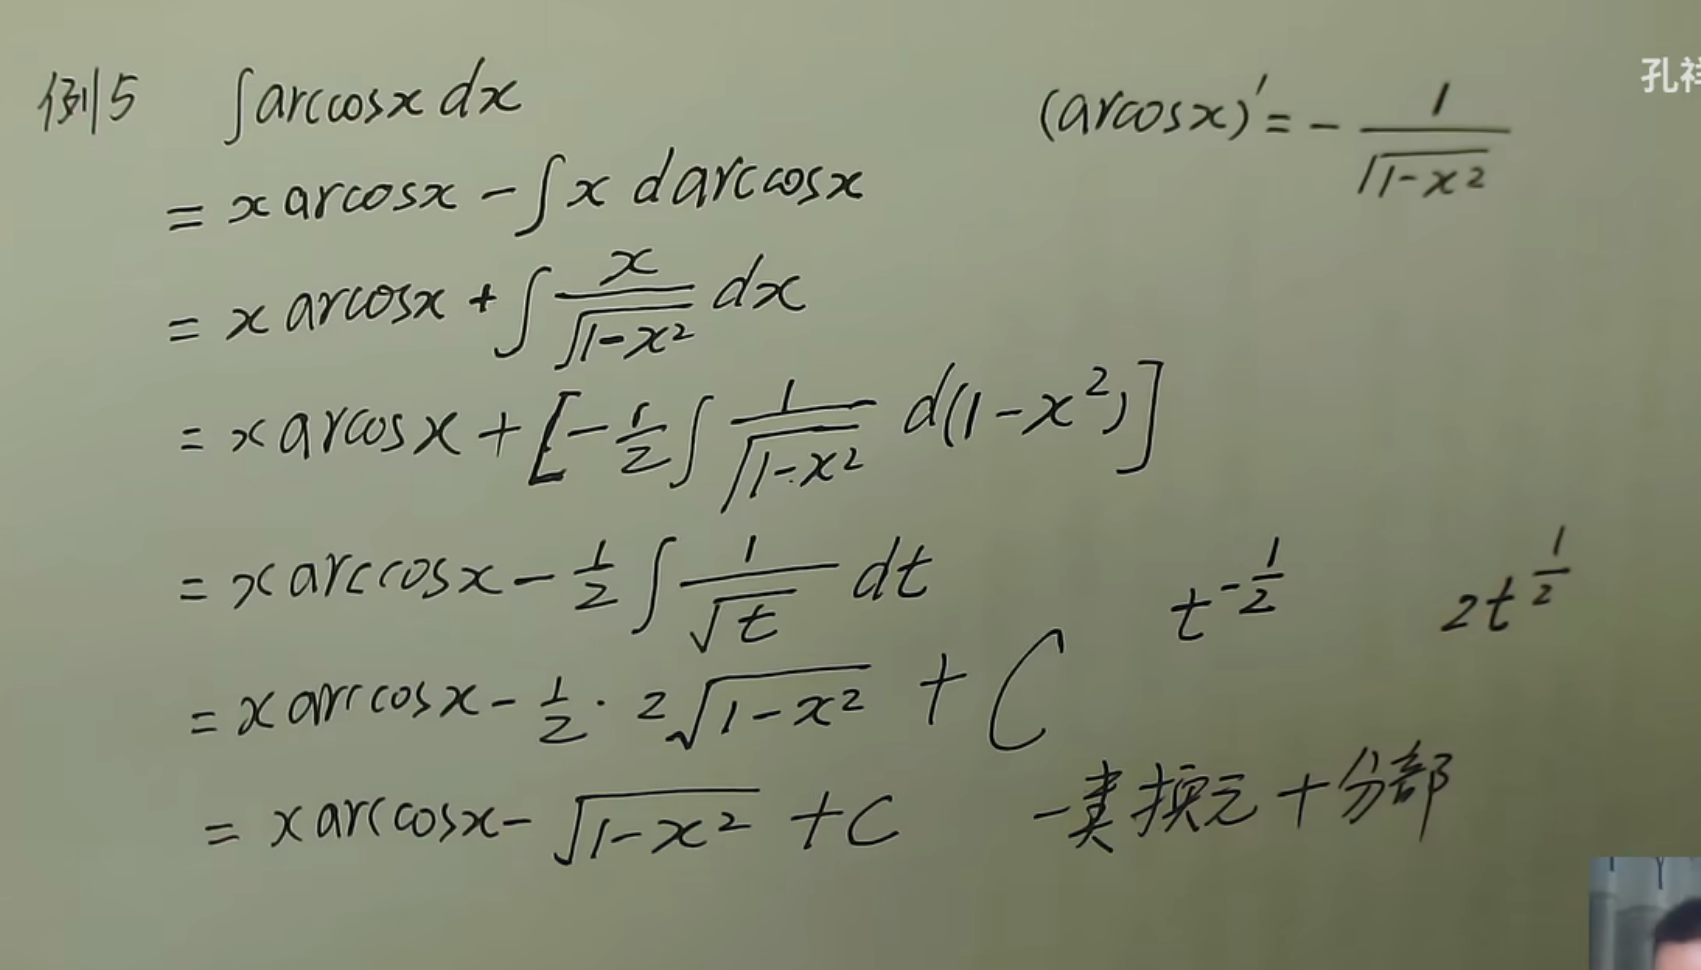 例5 ∫arccosx dx
(arcosx)' = - 1/√(1-x²)
孔祥
= x arcosx - ∫x darccosx
= x arcosx + ∫ x/√(1-x²) dx
= x arcosx + [-1/2 ∫ 1/√(1-x²) d(1-x²)]
= x arccosx - 1/2 ∫ 1/√t dt
t^(-1/2) 2t^(1/2)
= x arccosx - 1/2 · 2√(1-x²) + C
= x arccosx - √(1-x²) + C
一类换元+分部